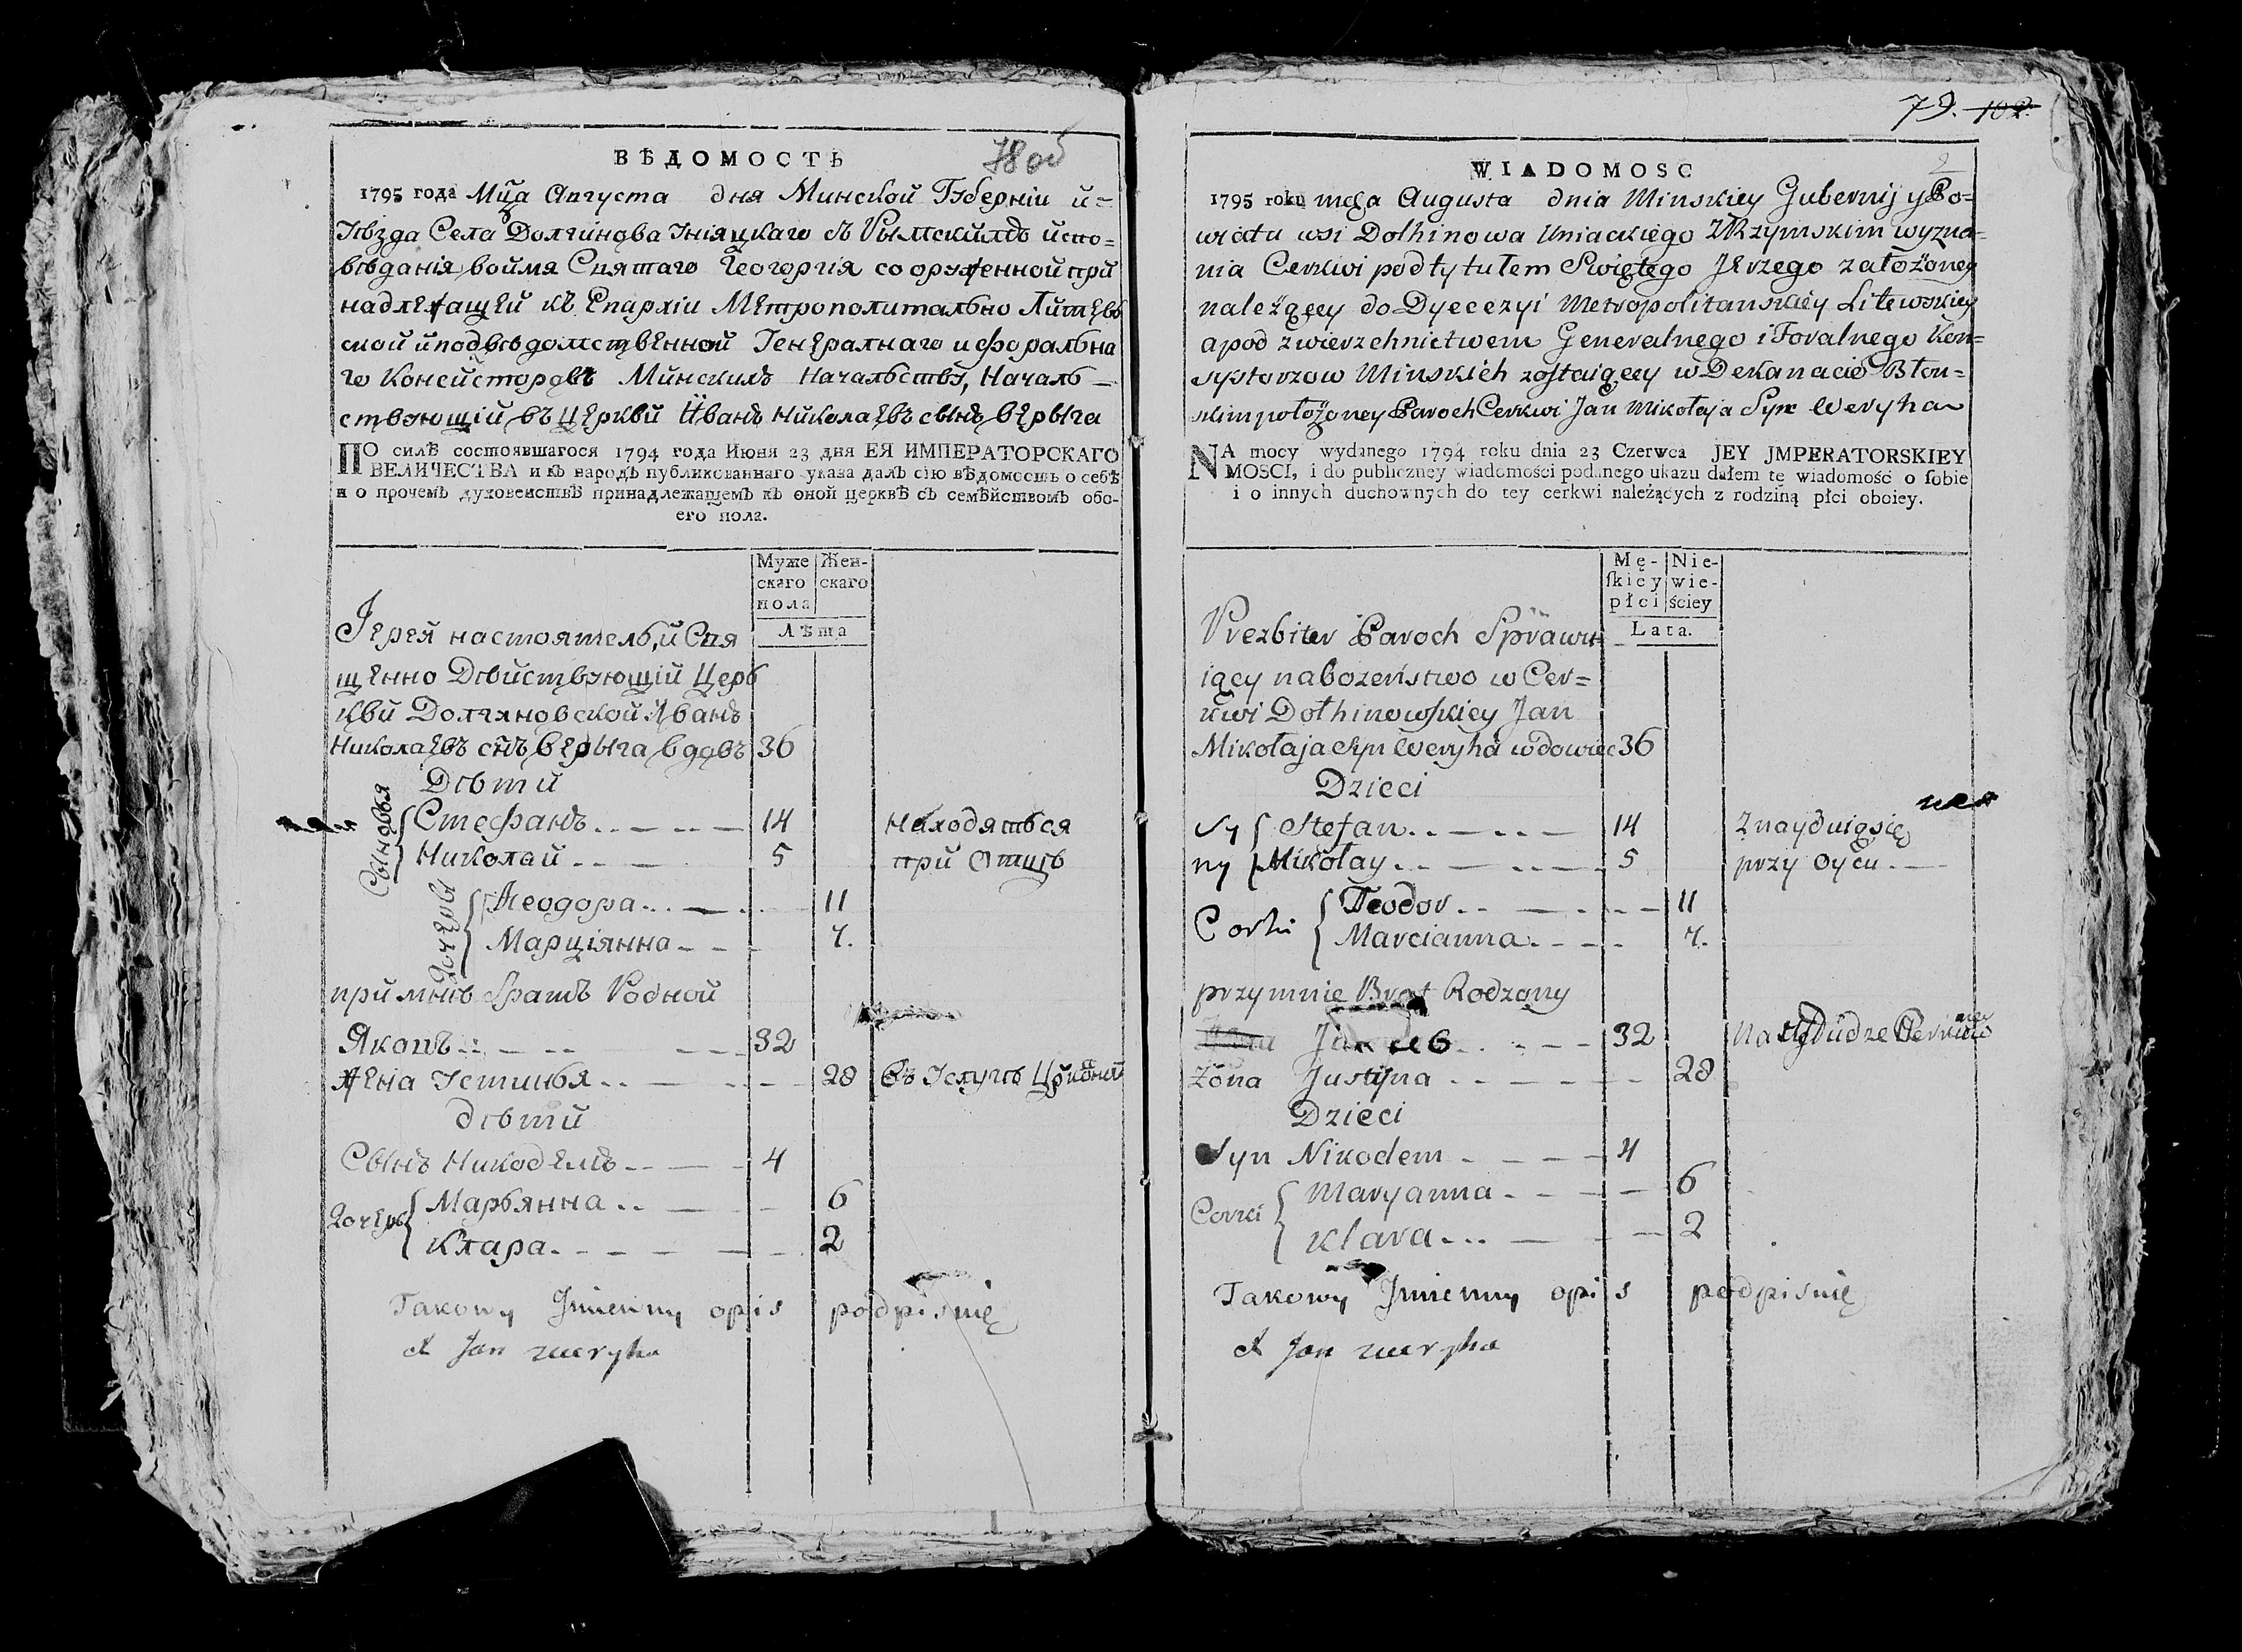 ВѢДОМОСТЬ
78 об
1795 года Мца Августа дня Минской Губерніи и=
Уѣзда Села Долгинова Уніяцкаго съ Рымскимъ испо=
вѣданія, во имя Святаго Георгія сооруженной при
надлежащей къ Епархіи Метрополитально Литев
ской и подвѣдомственной Генералнаго и форальна
го Консисторовъ Минскихъ Начальству, Началь—
ствующій въ Церкви Иванъ Николаевъ сынъ Верыга
ПО силѣ состоявшагося 1794 года Июня 23 дня ЕЯ ИМПЕРАТОРСКАГО
ВЕЛИЧЕСТВА и къ народъ публикованнаго указа далъ сію вѣдомость о себѣ
и о прочемъ духовенствѣ принадлежащемъ къ оной церквѣ съ семѣйствомъ обо-
его пола.
Муже Жен-
скаго скаго
пола
Лѣта
Іерей настоятель, и Свя
щенно Дѣйствующій Церь
кви Долгиновской Иванъ
Николаевъ снъ Верыга вдовъ 36
Дѣти
Сыновья
Стефанъ 14 Находяться
Николай 5 при Отцѣ
Дочеры
Ѳеодора 11
Марціянна 7.
при мнѣ братъ Родной
Яковъ 32
Жена Устинья 28 Въ Услугѣ Црковной
дѣти
Сынъ Никодемъ 4
Дочеры Марьянна 6
Клара 2
Takowy Jmienny opis podpisuię
X Jan Weryha
79. 102.
WIADOMOSC
1795 roku mca Augusta dnia Minskiey Gubernij y Po=
wiatu wsi Dolhinowa Uniackiego z Rzymskim wyzna=
nia Cerkwi pod tytułem Swiętego Jerzego założoney
należącey do Dyecezyi Metropolitanskiey Litewskiey
a pod zwierzchnictwem Generalnego i Foralnego Kon=
systorzow Minskich zostaiącey w Dekanacie Błon=
skim położoney Paroch Cerkwi Jan Mikołaja Syn Weryha
NA mocy wydanego 1794 roku dnia 23 Czerwca JEY JMPERATORSKIEY
MOSCI, i do publiczney wiadomości podanego ukazu dałem tę wiadomość o sobie
i o innych duchownych do tey cerkwi należących z rodziną płci oboiey.
Mę- Nie-
skiey wie-
płci ściey
Lata.
Prezbiter Paroch Sprawu
iący nabożeństwo w Cer=
kwi Dołhinowskiey Jan
Mikołaja Syn Weryha wdowiec 36
Dzieci
Sy Stefan 14 Znayduią się
ny Mikołay 5 przy Oycu
Corki Teodor 11
Marcianna 7.
przy mnie Brat Rodzony
Jakub 32 Na Usłudze Cerkwie
żona Justyna 28
Dzieci
Syn Nikodem 4
Corki Maryanna 6
Klara 2
Takowy Jmienny opis podpisuię
X Jan Weryha